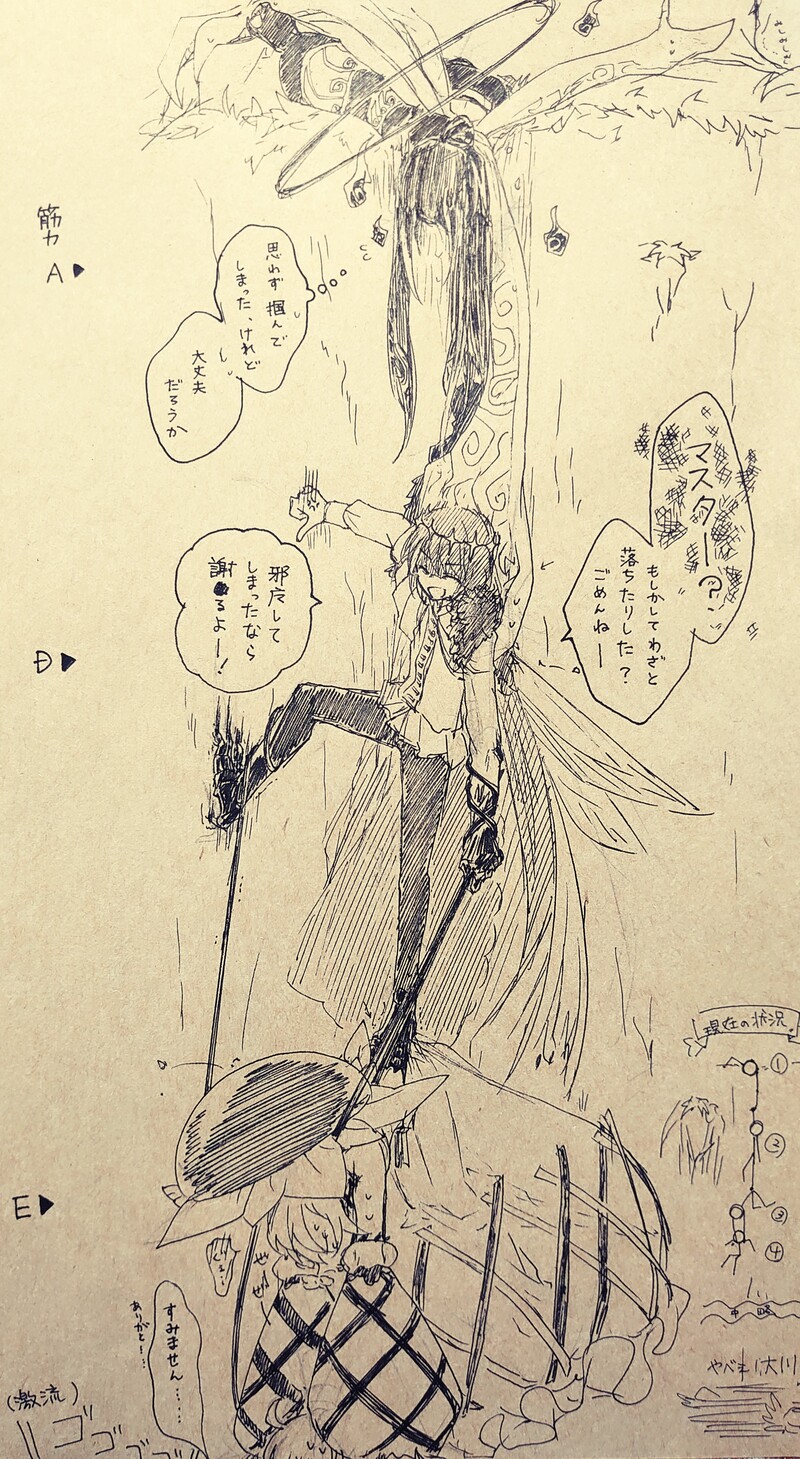 筋力
A▶
思わず掴んで
しまった、けれど
大丈夫
だろうか
マスター?
もしかしてわざと
落ちたりした?
ごめんねー
邪魔して
しまったなら
謝るよー!
D▶
現在の状況
①
②
③
④
中略
E▶
ぜぇ
ぜぇ
すみません……
ありがと…
(激流)
ゴゴゴゴ